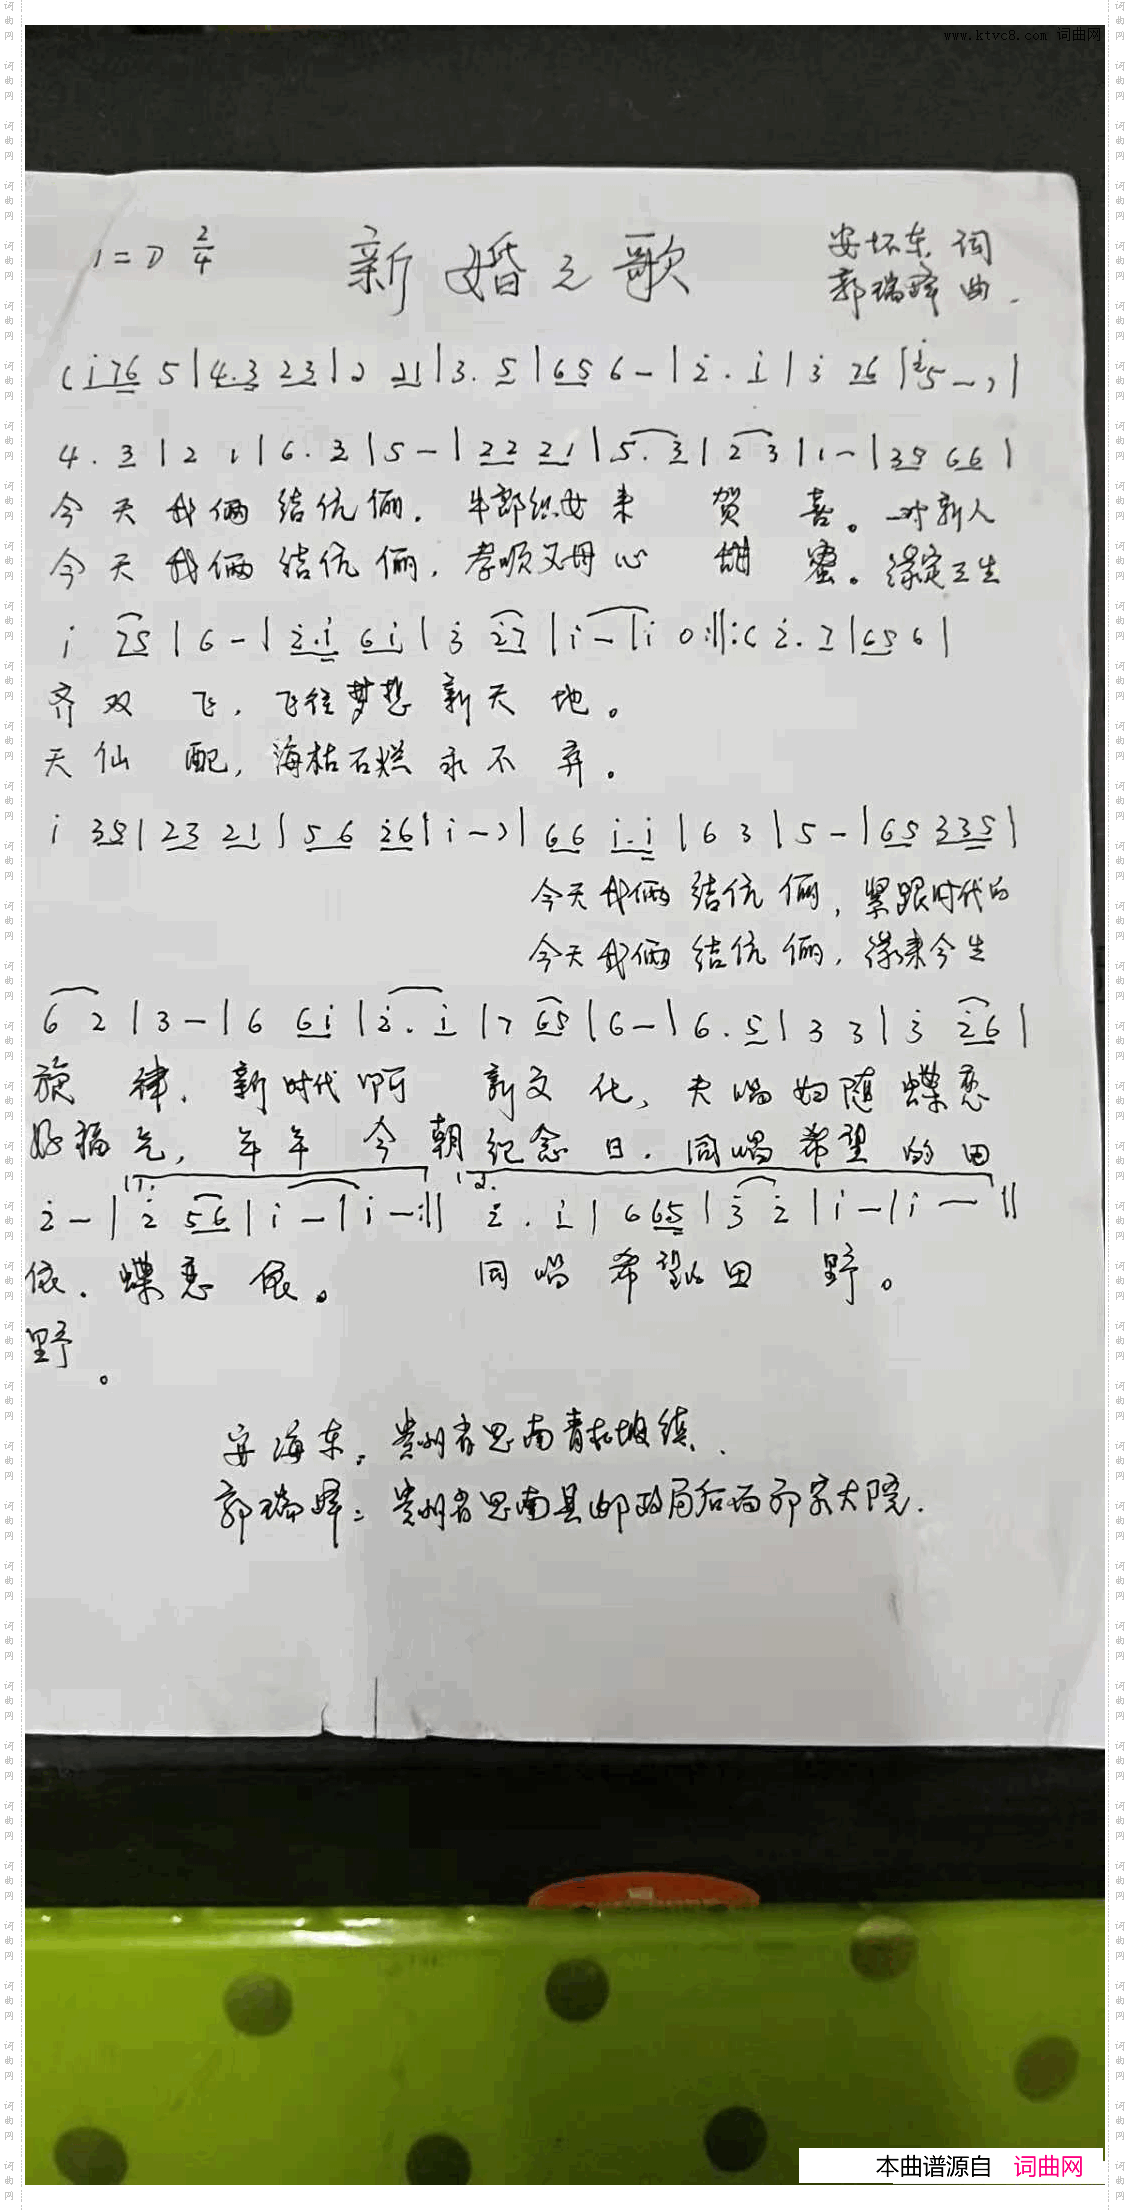 www.ktvc8.com 词曲网
1=D 2/4 新婚之歌 安怀东 词
郭瑞峰 曲.
(i 76 5|4.3 23|2 21|3. 5|65 6-|2. i|3 26|5-)|
4. 3|2 1|6. 3|5-|22 21|5. 3|2 3|1-|35 66|
今天我俩结伉俪. 牛郎织女来 贺 喜。一对新人
今天我俩结伉俪, 孝顺父母心 甜 蜜。缘定三生
i 75|6-|2.i 6i|3 27|i-|i 0:||:( 2. 7|65 6|
齐双 飞, 飞往梦想 新天 地。
天仙 配, 海枯石烂 永不 弃。
i 35|23 21|56 26|i-)|66 i.i|6 3|5-|65 335|
今天我俩 结伉 俪, 紧跟时代的
今天我俩 结伉 俪, 缘来今生
6 2|3-|6 6i|2. i|7 65|6-|6. 5|3 3|3 26|
旋 律. 新时代啊 新文 化, 夫唱妇随 蝶恋
好福气, 年年 今朝 纪念 日. 同唱希望 的田
1. 2.
2-|2 56|i-|i-:|| 2. i|6 65|3 2|i-|i-||
依. 蝶恋 依。 同唱 希望的田 野。
野。
安海东: 贵州省思南青杠坡镇.
郭瑞峰: 贵州省思南县邮政局后面邓家大院.
本曲谱源自 词曲网